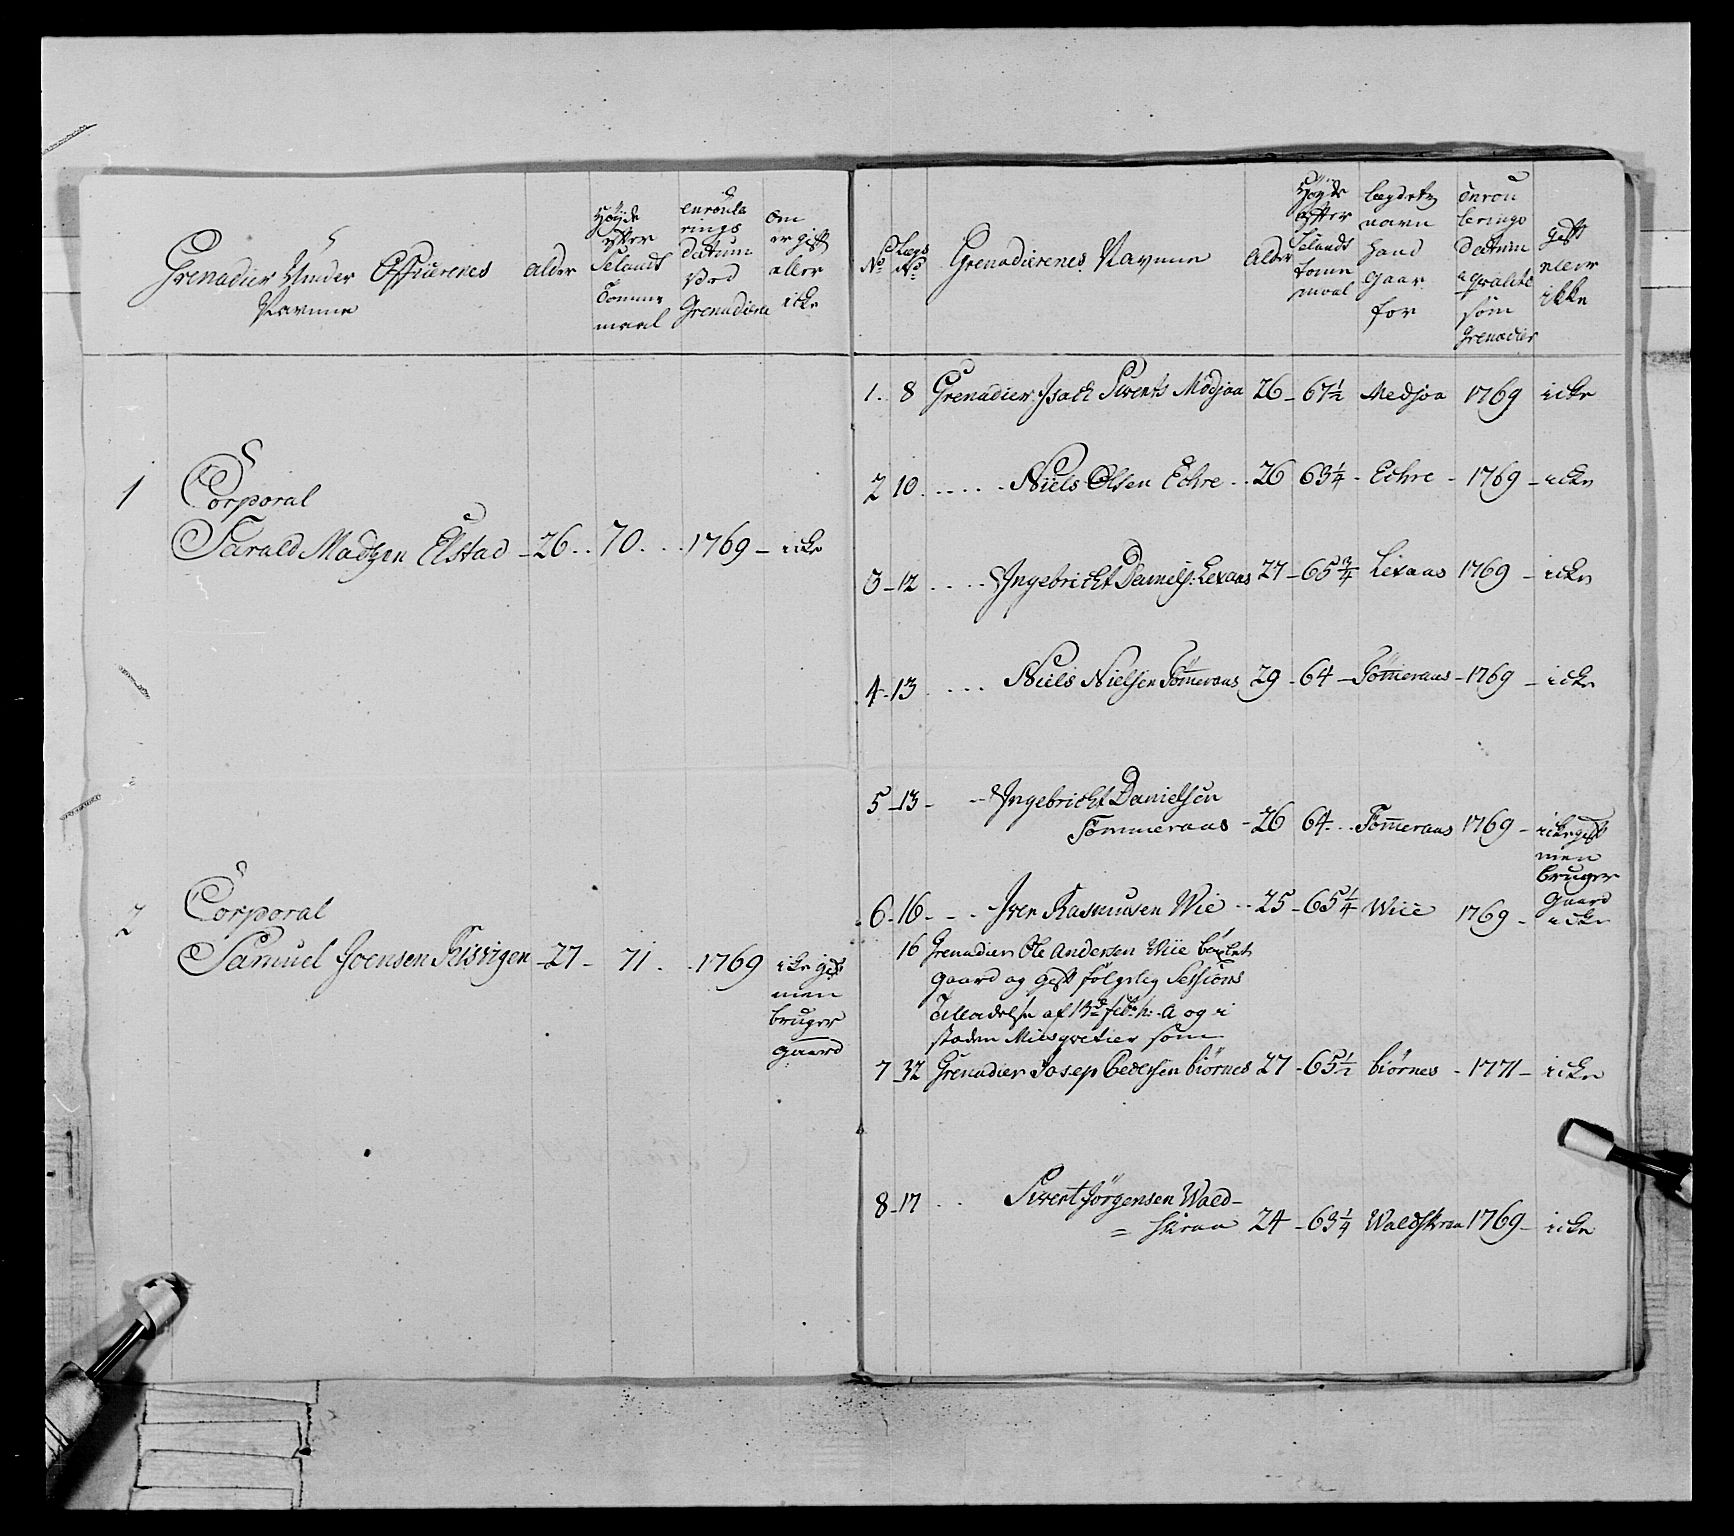 Grenadier Under Officerenes
Navnne
alder
Høyde
efter
Selands
Tomme
maal
enroule
rings
datum
ved
Grenadiere
om
er gift
eller
icke
1
Corporal
Harald Madtzen Elstad - 26 . . 70 . . . 1769 - icke
2
Corporal
Samuel Joensen - 27 - 71 . . . 1769 icke gift
men
bruger
gaard
No
Lægs
No
Grenadierenes Navnne
Alder
Høyde
efter
Selands
tomme
maal
Lægdets
navn
hand
gaar
for
Enrou
lerings
Datum
qvalite
som
Grenadier
gift
eller
ikke
1. 8 Grenadier Isach Siverts Modjaa 26 - 67½ Medjaa 1769 icke
2 10 . . . . . Niels Olsen Echre . . 26 63¼ - Echre - 1769 - icke
3 - 12 . . . . Ingebricht Daniels: Lexaas 27 - 65¾ Lixaas 1769 - icke
4 - 13 . . . . Niels Nielsen Tömeraas 29 - 64 - Tömeraas - 1769 - icke
5 - 13 - - - Ingebricht Danielsen
Tømmeraas - 26 64 . . . Tömeraas 1769 - icke gift
men
bruger
Gaard
6 - 16 - - - Iver Rasmusen Wie - - 25 - 65¼ Wiie 1769 - icke
16 Grenadier Ole Andersen Wiie böxlet
gaard og gift følgelig Sessions
Tilladelse af 13de feb: h: A og i
staden som
7 - 32 Grenadier Josep Pedersen Biörnes 27 - 65½ biörnes - 1771 - icke
8 - 17 . . Sivert Jörgensen Wald-
= skraa 24 - 63¼ Waldskraa 1769 - icke